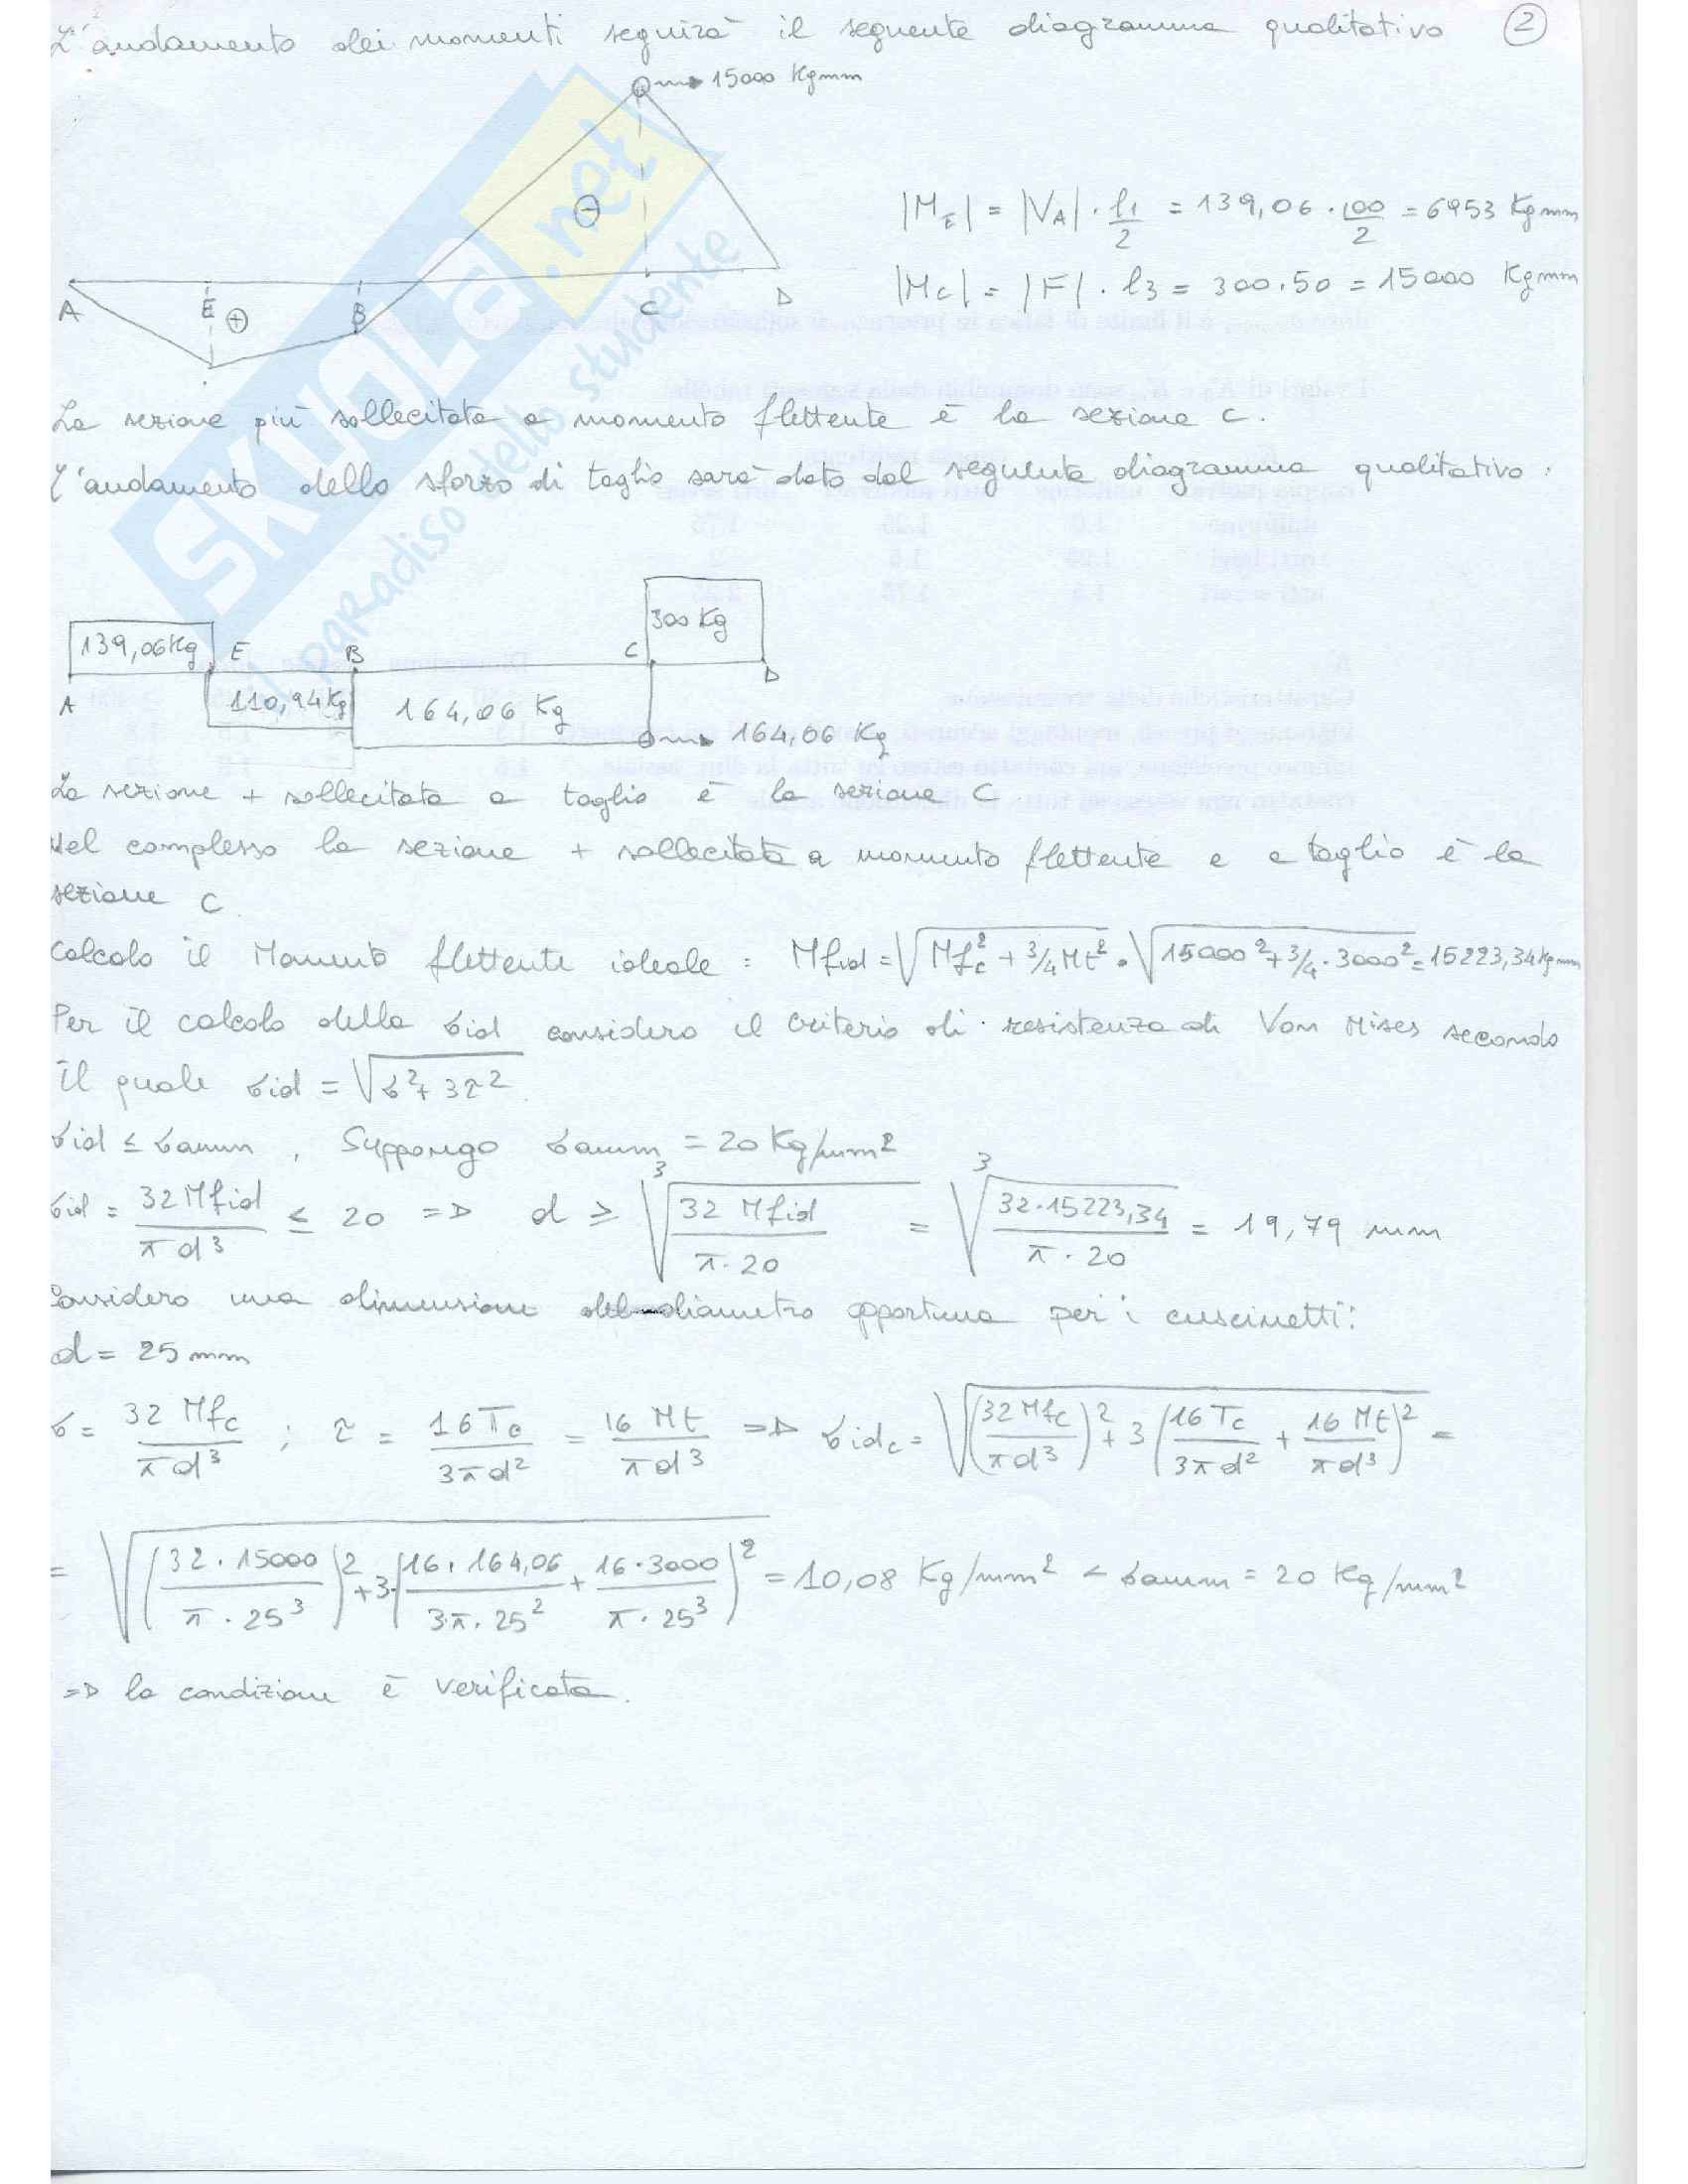 L'andamento dei momenti seguirà il seguente diagramma qualitativo 2
15000 Kgmm
|M_E| = |V_A| · l1/2 = 139,06 · 100/2 = 6953 Kgmm
|M_C| = |F| · l3 = 300·50 = 15000 Kgmm
A E ⊕ B ⊖ C D
SKUOLA.net
il paradiso dello studente
La sezione più sollecitata a momento flettente è la sezione C.
L'andamento dello sforzo di taglio sarà dato dal seguente diagramma qualitativo:
300 Kg
139,06Kg E B C D
A 110,94Kg 164,06 Kg 164,06 Kg
La sezione + sollecitata a taglio è la sezione C
Nel complesso la sezione + sollecitata a momento flettente e a taglio è la
sezione C
Calcolo il Momento flettente ideale: Mfid = √(Mfc² + 3/4 Mt²) = √(15000² + 3/4 · 3000²) = 15223,34 Kgmm
Per il calcolo della σid considero il criterio di resistenza di Von Mises secondo
il quale σid = √(σ² + 3τ²)
σid ≤ σamm , Suppongo σamm = 20 Kg/mm²
σid = 32 Mfid / πd³ ≤ 20 => d ≥ ³√(32 Mfid / π·20) = ³√(32·15223,34 / π·20) = 19,79 mm
Considero una dimensione del diametro opportuna per i cuscinetti:
d = 25 mm
σ = 32 Mfc / πd³ ; τ = 16 Tc / 3πd² = 16 Mt / πd³ => σidc = √((32 Mfc / πd³)² + 3 (16 Tc / 3πd² + 16 Mt / πd³)²) =
= √((32·15000 / π·25³)² + 3·(16·164,06 / 3π·25² + 16·3000 / π·25³)²) = 10,08 Kg/mm² < σamm = 20 Kg/mm²
=> la condizione è verificata.